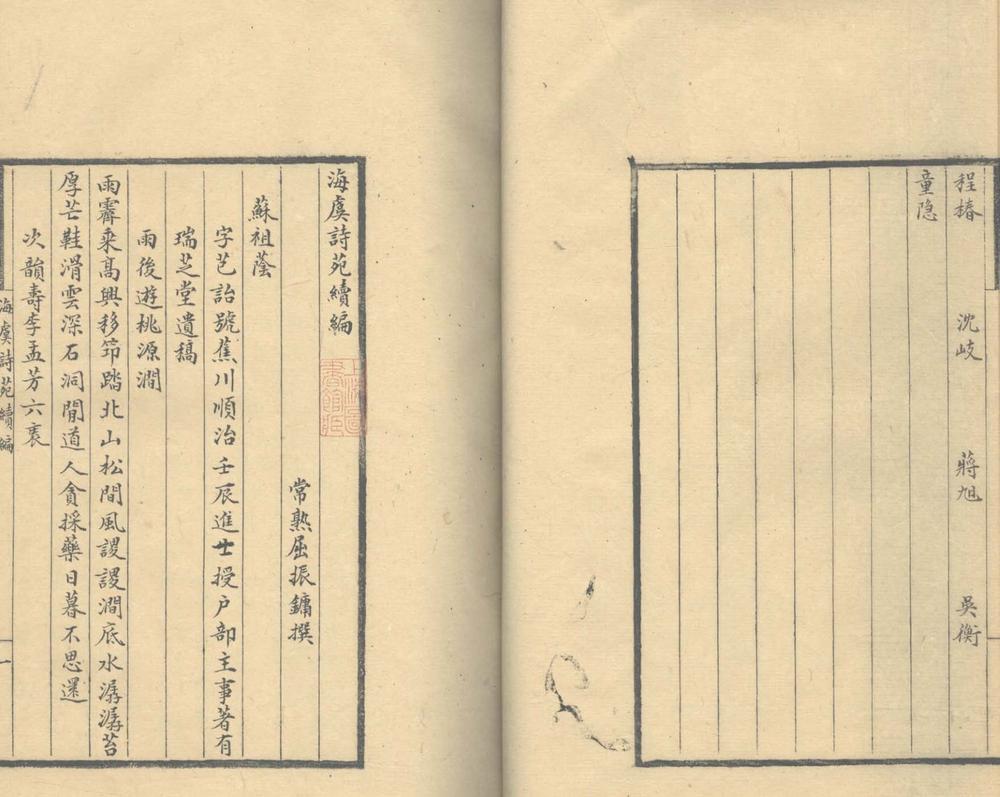 程椿 沈岐 蔣旭 吳衡
童隐
海虞詩苑續編
上海圖書館藏
常熟屈振鏞撰
蘇祖蔭
字芑詒號蕉川順治壬辰進士授户部主事著有
瑞芝堂遺稿
雨後遊桃源澗
雨霽乘高興移筇踏北山松間風謖謖澗底水潺潺苔
厚芒鞋滑雲深石洞閒道人貪採藥日暮不思還
次韻壽李孟芳六袠
海虞詩苑續編
一